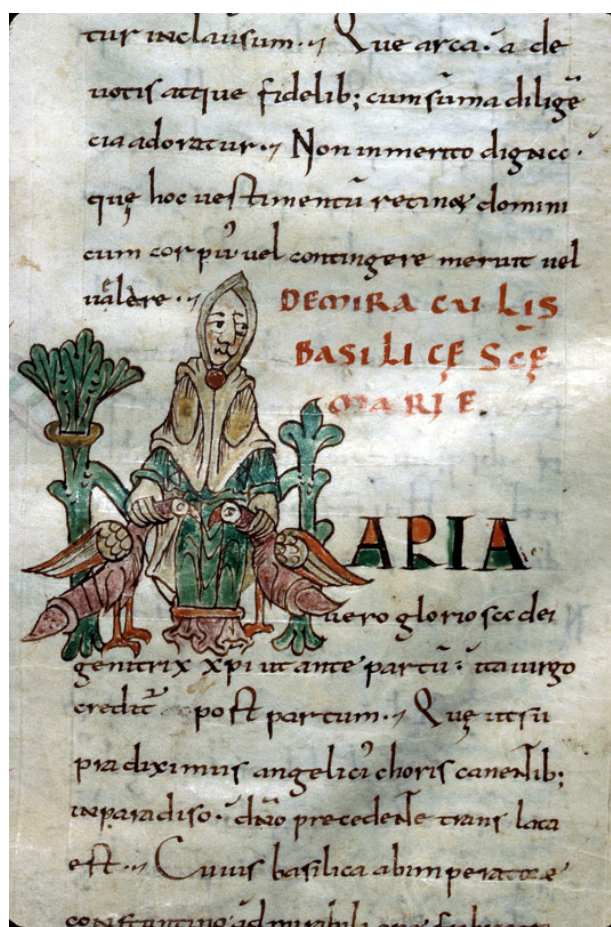 tur inclausum. Que arca. a de
uotis atque fidelib; cum sūma diligē
cia adoratur. Non inmerito
quę hoc uestimentū domini
cum corpus uel contingere meruit uel
ualère.
DEMIRACULIS
BASILICĘ SCĘ
MARIE.
ARIA
uero gloriosa dei
genitrix xpi ut ante partū. ita uirgo
credit̄ post partum. Quę ut su
pradiximus angelicis choris canentib;
inparadiso. dn̄o precedente trans lata
est. Cuius basilica abimperatore
constantino admirabili